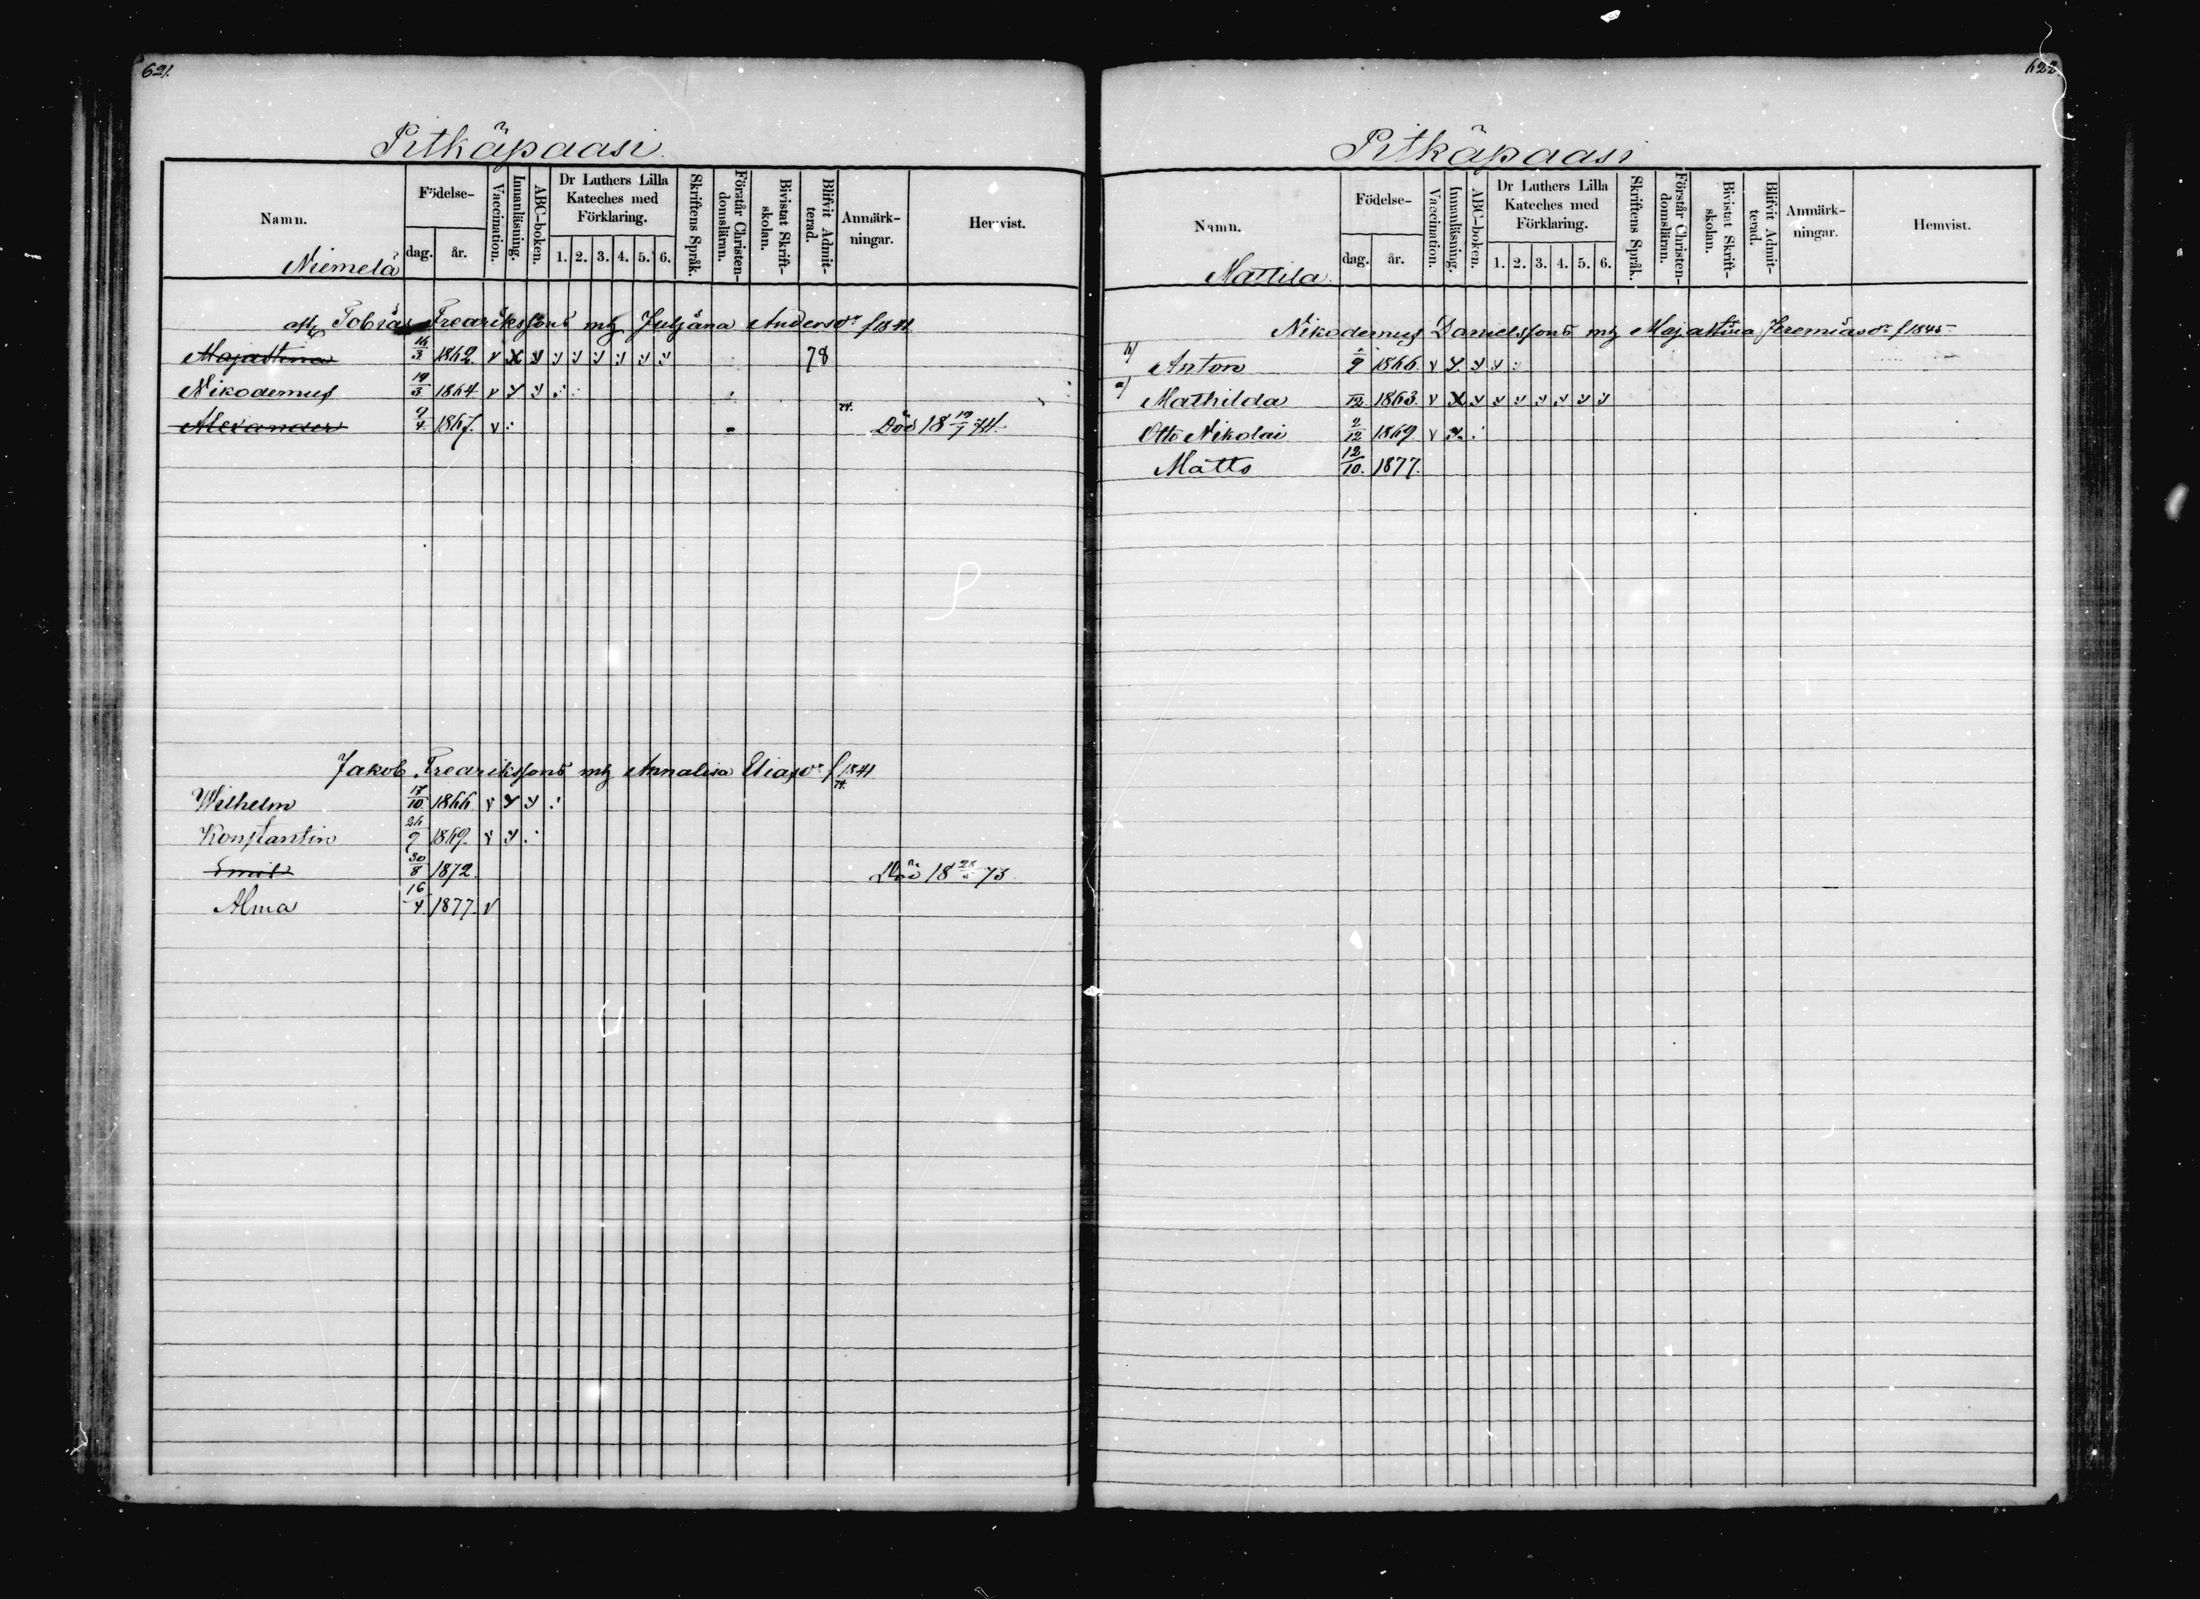 621.
Pitkäpaasi.
Namn. Födelse- Vaccination. Innanläsning. ABC-boken. Dr Luthers Lilla Kateches med Förklaring. Skriftens Språk. Förstår Christen-domsläran. Bivistat Skrift-skolan. Blifvit Admit-terad. Anmärk-ningar. Hemvist.
Niemelä dag. år. 1. 2. 3. 4. 5. 6.
Tobias Fredrikssons mh Juljana Andersdr f 1841
Majastina 16/3 1862. v x v v v v v v v 78
Nikodemus 19/3 1864 v v v
Alexander 9/4 1867. v Död 18 19/1 74.
Jakob Fredrikssons mh Annalisa Eliasdr f 1841
Wilhelm 17/10 1866 v v v
Konstantin 26/9 1869. v v
Emil 30/8 1872. Död 18 73.
Alma 16/4 1877. v
622.
Pitkäpaasi
Namn. Födelse- Vaccination. Innanläsning. ABC-boken. Dr Luthers Lilla Kateches med Förklaring. Skriftens Språk. Förstår Christen-domsläran. Bivistat Skrift-skolan. Blifvit Admit-terad. Anmärk-ningar. Hemvist.
Mattila. dag. år. 1. 2. 3. 4. 5. 6.
Nikodemus Danielssons mh Majastina Jeremiasdr f 1845
b) Anton /9 1866. v v v v
a) Mathilda /12. 1863. v x v v v v v v v
Otto Nikolai 2/12 1869 v v
Matts 12/10. 1877.